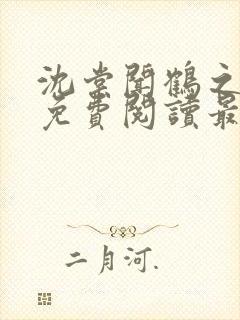 沈棠聞鶴之
免費閱讀最
二月河.